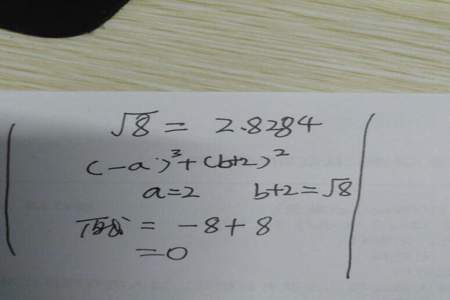 √8 = 2.8284
(-a)³+(b+2)²
a=2 b+2=√8
原式 = -8+8
=0